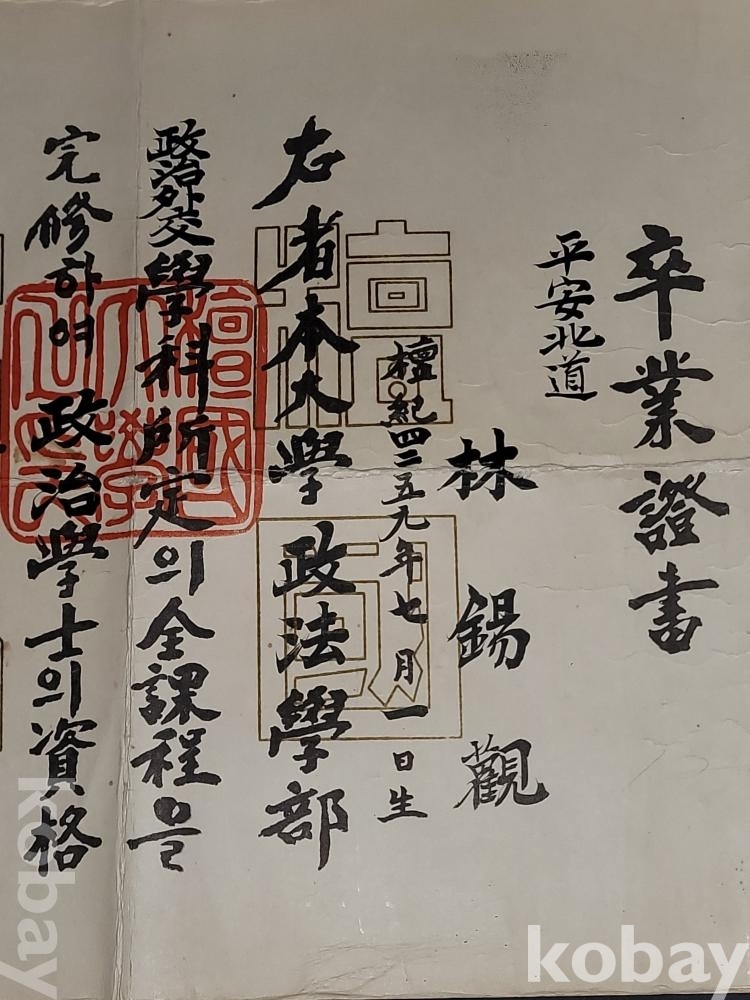 卒業證書
平安北道
林錫觀
檀紀四二五九年七月一日生
右者本大學政法學部
政治外交學科所定의全課程을
完修하여政治學士의資格
kobay
kobay